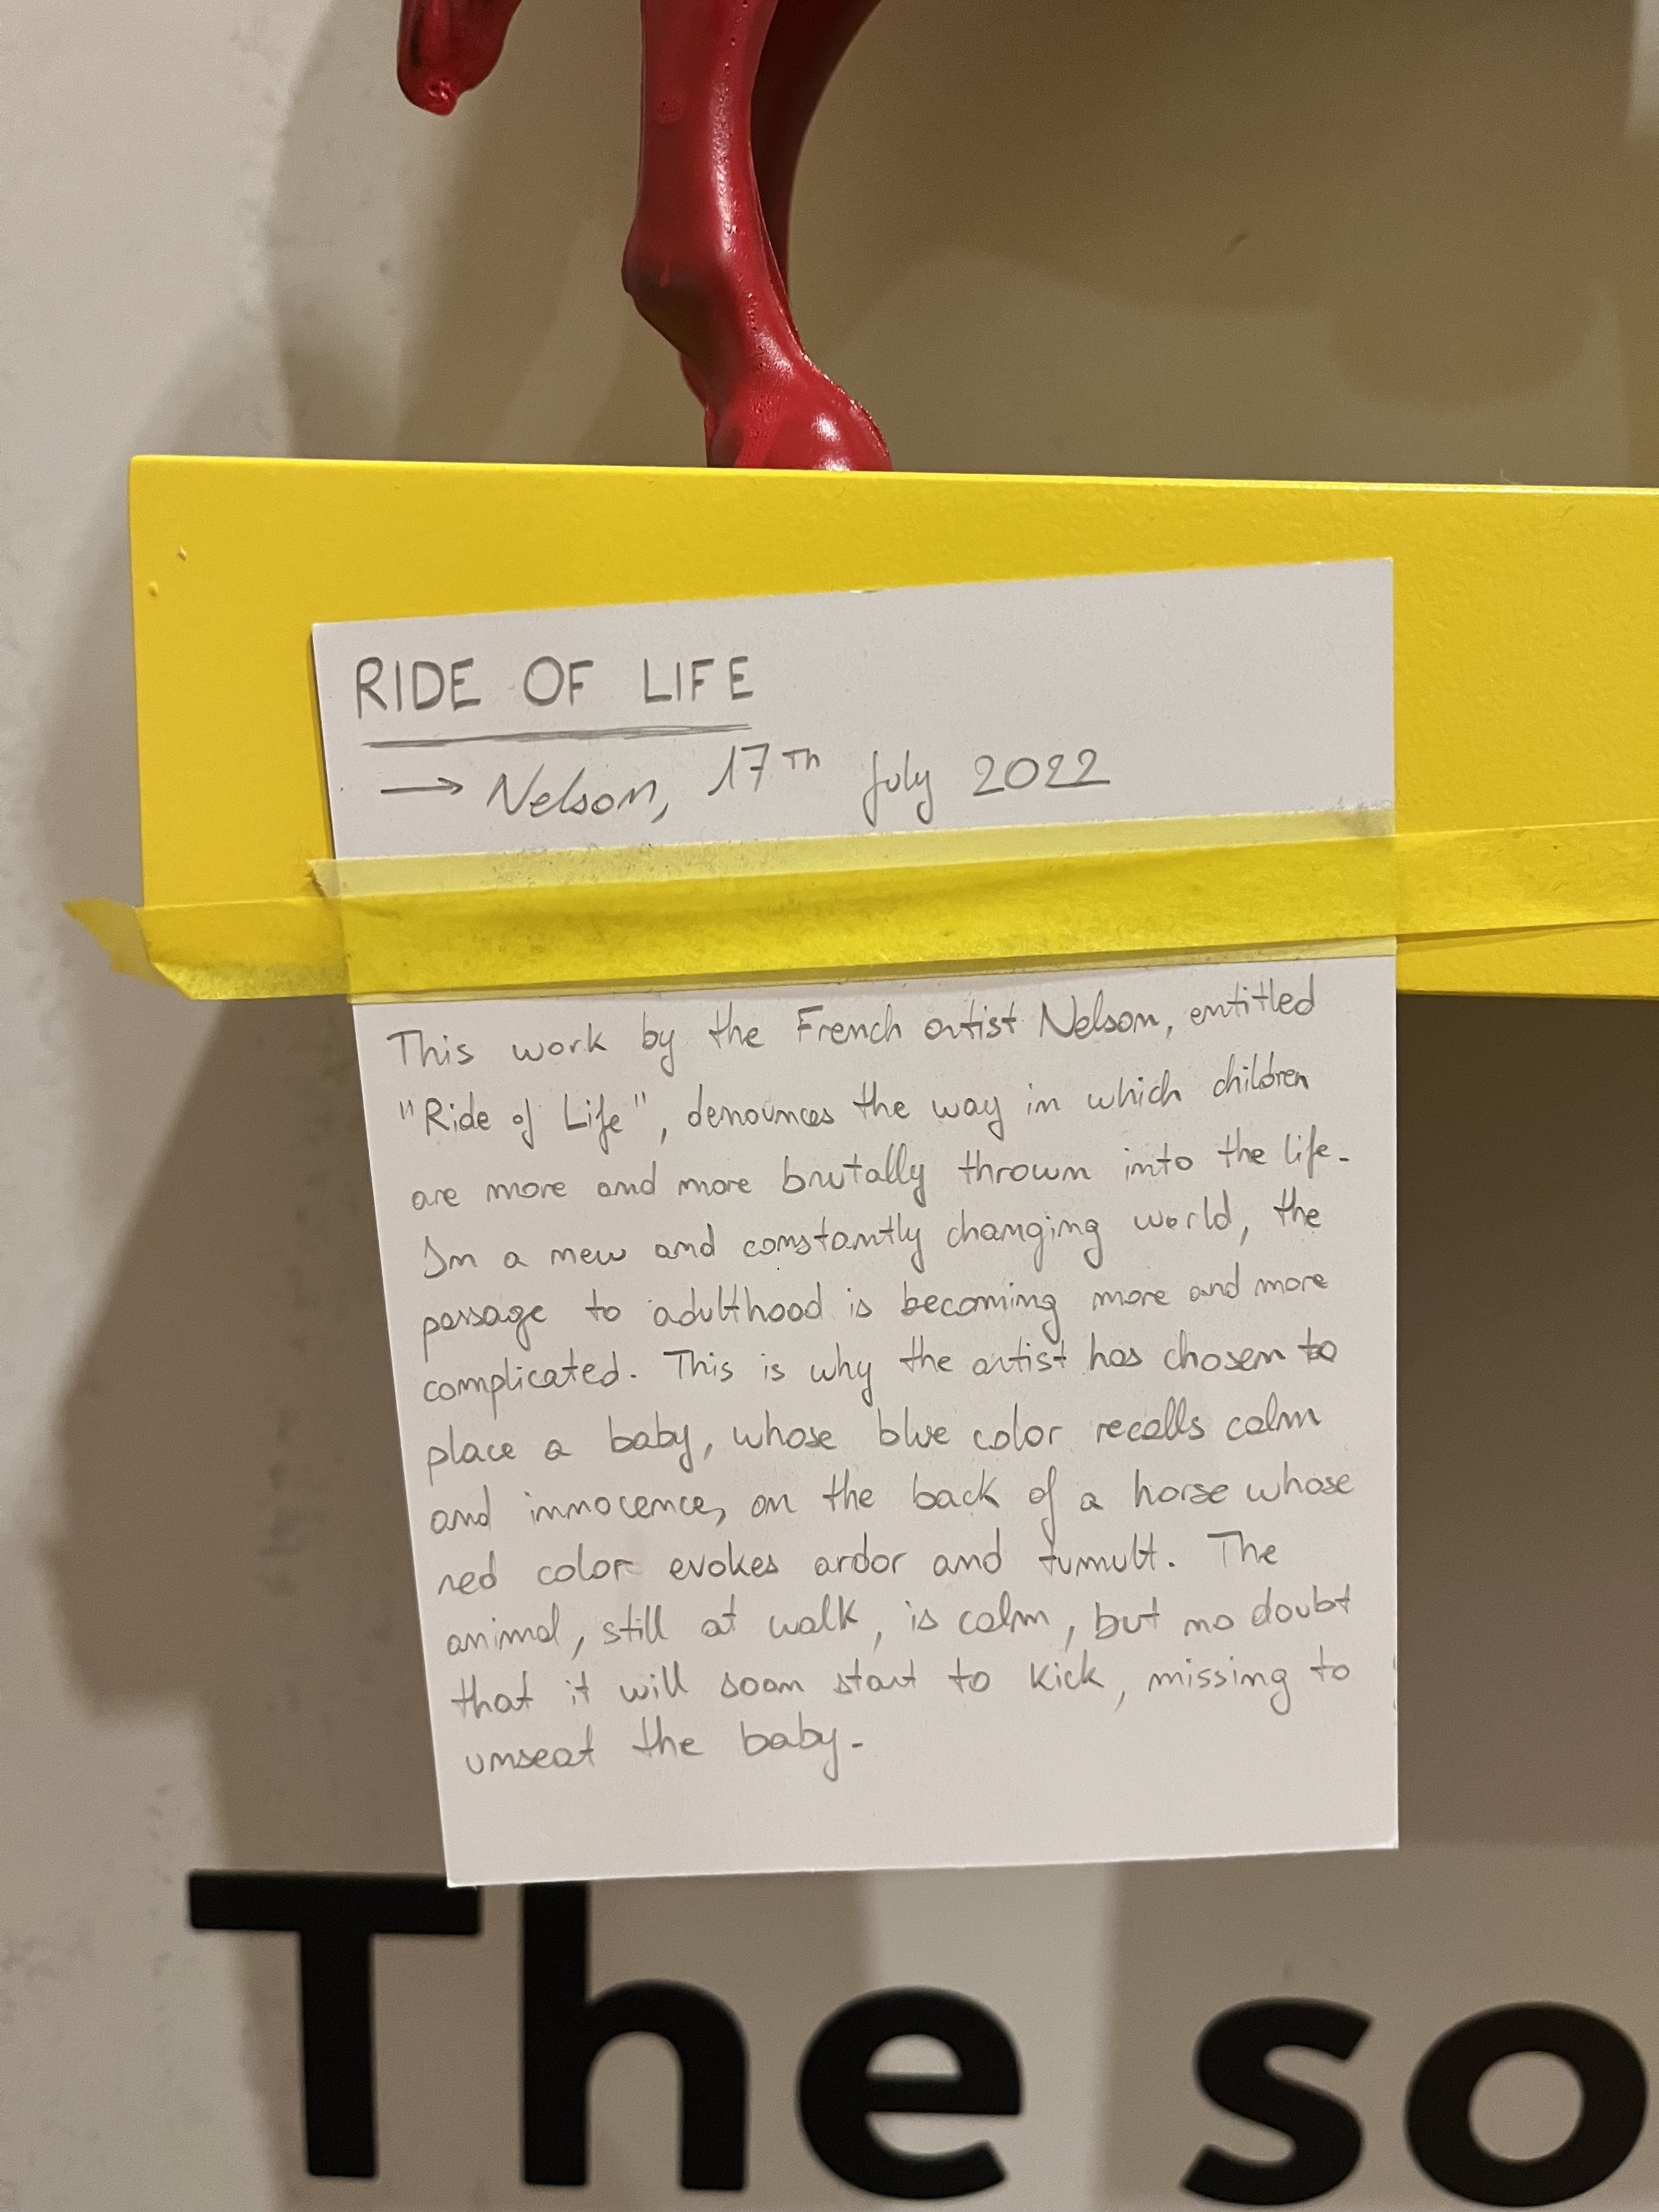 RIDE OF LIFE
→ Nelson, 17Th July 2022
This work by the French artist Nelson, entitled
"Ride of Life", denounces the way in which children
are more and more brutally thrown into the life.
In a new and constantly changing world, the
passage to adulthood is becoming more and more
complicated. This is why the artist has chosen to
place a baby, whose blue color recalls calm
and innocence, on the back of a horse whose
red color evokes ardor and tumult. The
animal, still at walk, is calm, but no doubt
that it will soon start to kick, missing to
unseat the baby.
The so